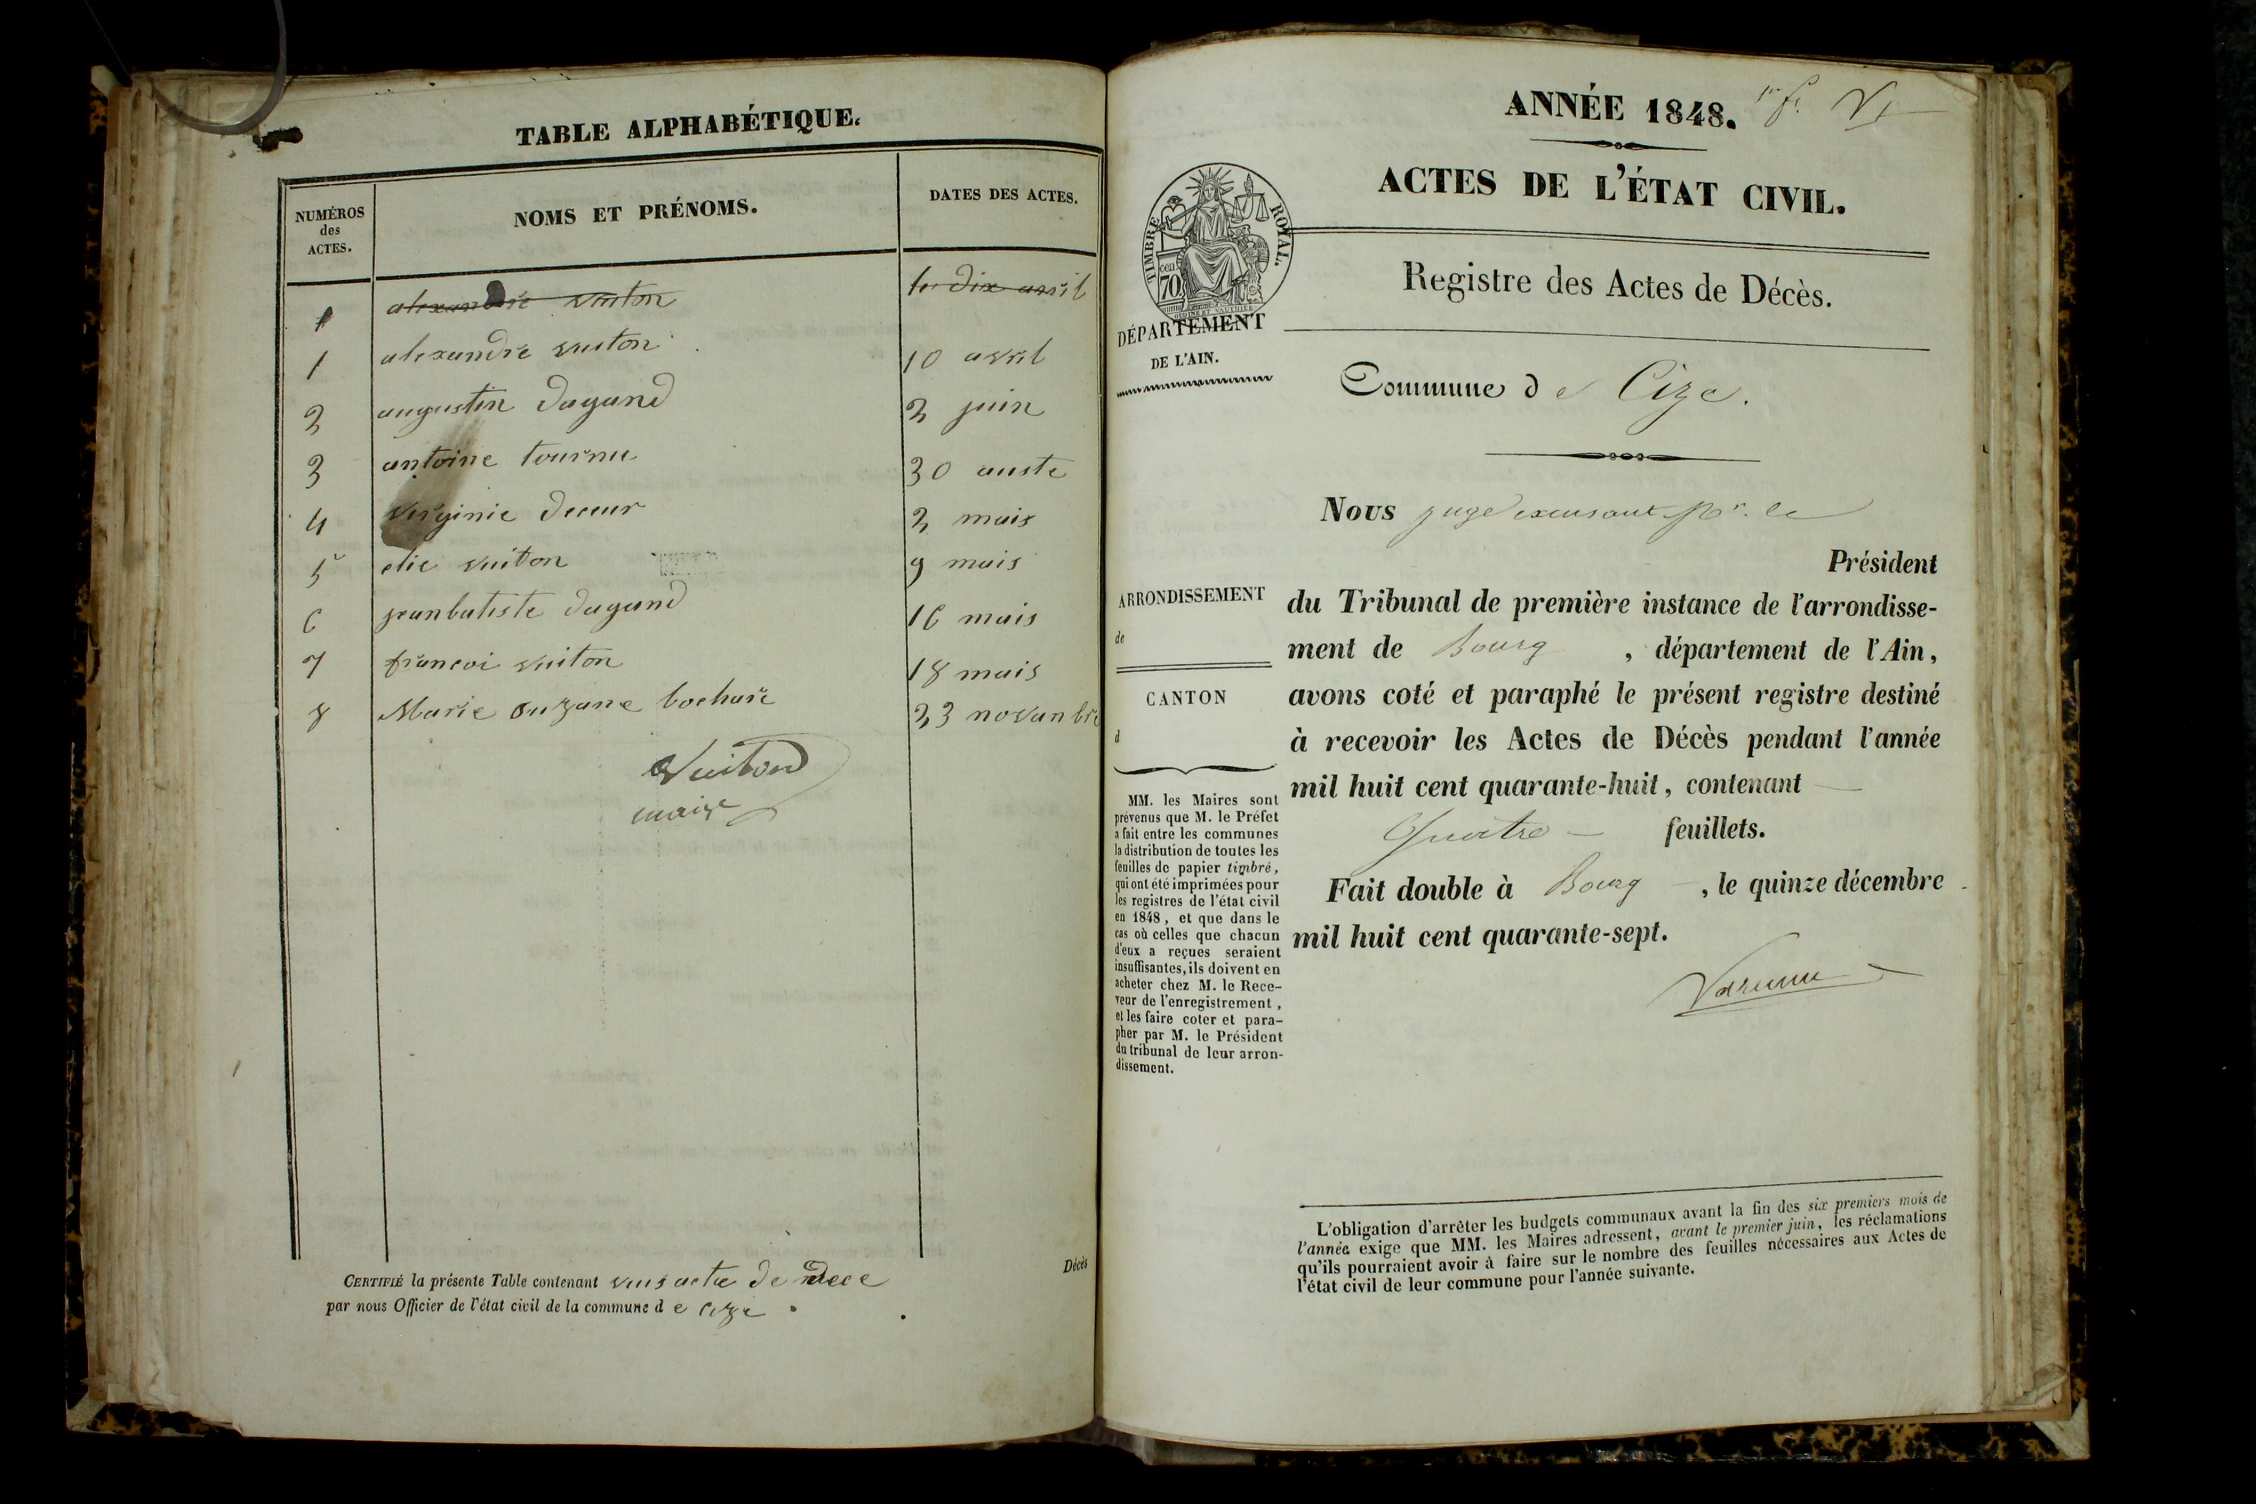 TABLE ALPHABÉTIQUE.
NUMÉROS des ACTES. NOMS ET PRÉNOMS. DATES DES ACTES.
1 alexandre vuiton le dix avril
1 alexandre vuiton 10 avril
2 augustin dagand 2 juin
3 antoine tournu 30 auste
4 virginie deceur 2 mais
5 elie vuiton 9 mais
6 jeanbatiste dagand 16 mais
7 francoi vuiton 18 mais
8 Marie suzane bochare 23 novanbre
Vuiton
maire
CERTIFIÉ la présente Table contenant acte de dece
par nous Officier de l'état civil de la commune d e cize .
Décès
ANNÉE 1848. 1er f.
ACTES DE L'ÉTAT CIVIL.
TIMBRE ROYAL.
cen 70
Registre des Actes de Décès.
DÉPARTEMENT
DE L'AIN.
Commune d e Cize.
Nous juge pr. le
Président
du Tribunal de première instance de l'arrondisse-
ment de Bourg , département de l'Ain,
avons coté et paraphé le présent registre destiné
à recevoir les Actes de Décès pendant l'année
mil huit cent quarante-huit, contenant
Quatre feuillets.
Fait double à Bourg , le quinze décembre
mil huit cent quarante-sept.
ARRONDISSEMENT
de
CANTON
d
MM. les Maires sont
prévenus que M. le Préfet
a fait entre les communes
la distribution de toutes les
feuilles de papier timbré,
qui ont été imprimées pour
les registres de l'état civil
en 1848, et que dans le
cas où celles que chacun
d'eux a reçues seraient
insuffisantes, ils doivent en
acheter chez M. le Rece-
veur de l'enregistrement,
et les faire coter et para-
pher par M. le Président
du tribunal de leur arron-
dissement.
L'obligation d'arrêter les budgets communaux avant la fin des six premiers mois de
l'année exige que MM. les Maires adressent, avant le premier juin, les réclamations
qu'ils pourraient avoir à faire sur le nombre des feuilles nécessaires aux Actes de
l'état civil de leur commune pour l'année suivante.